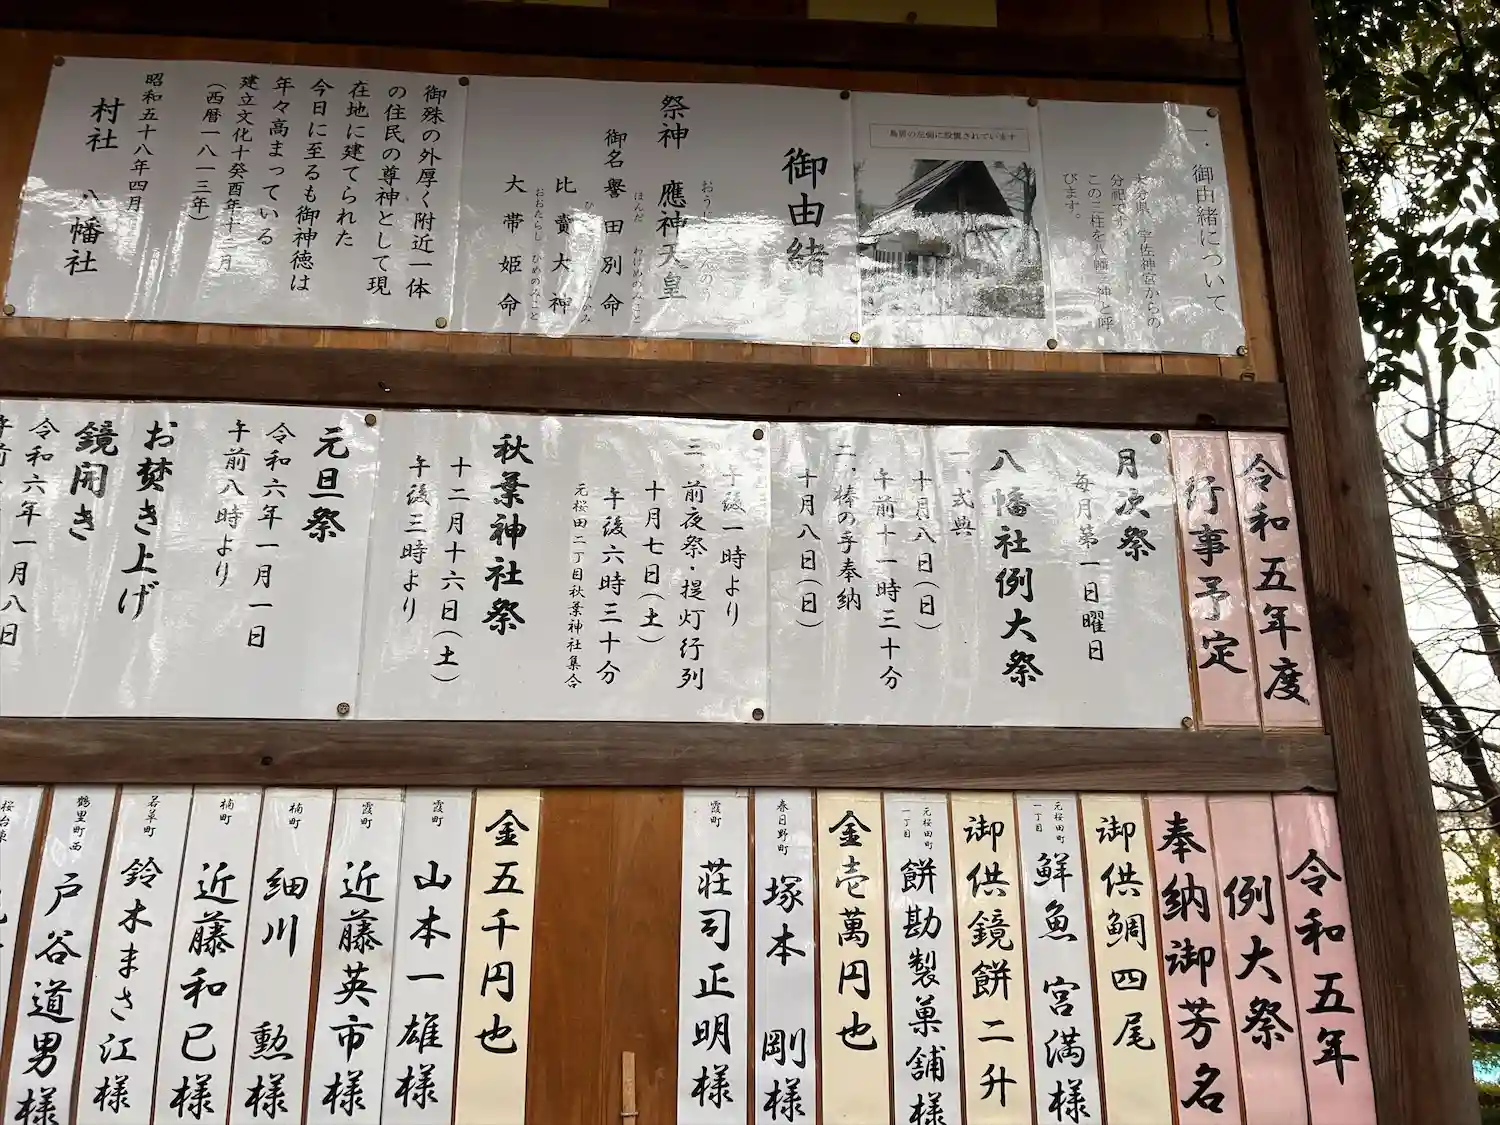 一.御由緒について
大分県、宇佐神宮からの
分祀です。
この三柱を八幡三神と呼
びます。
鳥居の左側に設置されています
御由緒
祭神 應神天皇
御名 譽田別命
ほんだ わけのみこと
比賣大神
大帯姫命
おおたらし ひめのみこと
御殊の外厚く附近一体
の住民の尊神として現
在地に建てられた
今日に至るも御神徳は
年々高まっている
建立文化十癸酉年十二月
(西暦一八一三年)
昭和五十八年四月
村社 八幡社
令和五年度
行事予定
月次祭
毎月第一日曜日
八幡社例大祭
一、式典
十月八日(日)
午前十一時三十分
二、棒の手奉納
十月八日(日)
午後一時より
三、前夜祭・提灯行列
十月七日(土)
午後六時三十分
元桜田二丁目秋葉神社集合
秋葉神社祭
十二月十六日(土)
午後三時より
元旦祭
令和六年一月一日
午前八時より
お焚き上げ
鏡開き
令和六年一月八日
午前
令和五年
例大祭
奉納御芳名
御供鯛四尾
元桜田町一丁目 鮮魚 宮満様
御供鏡餅二升
元桜田町一丁目 餅勘製菓舗様
金壱萬円也
春日野町 塚本 剛様
霞町 荘司正明様
金五千円也
霞町 山本一雄様
霞町 近藤英市様
楠町 細川 勲様
楠町 近藤和巳様
若草町 鈴木まさ江様
鶴里町西 戸谷道男様
桜台東